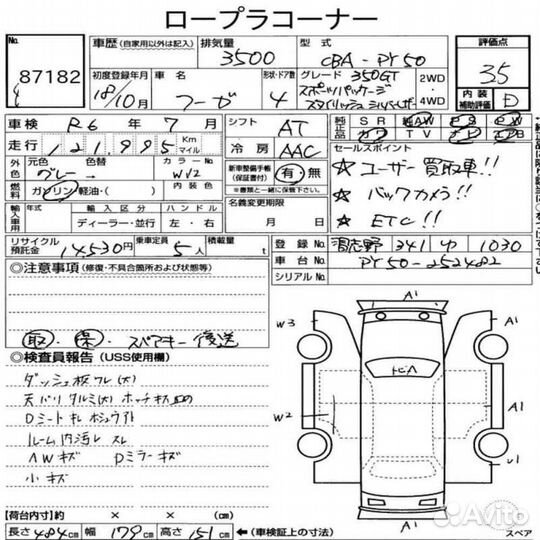 ロープラコーナー
No.
87182
車歴 (自家用以外は記入)
排気量
3500
型式
CBA - PY50
評価点
3.5
初度登録年月
18/10月
車名
フーガ
形状・ドア数
4
グレード 350GT
スポーツパッケージ
スタイリッシュシルバーレザー
2WD
4WD
内装
補助評価
D
車検 R6年 7月
シフト AT
純正品 SR 純AW PS PW
カワ TV ナビ エアB
走行 121,995 Km マイル
冷房 AAC
セールスポイント
外色 元色 グレー → 色替
カラーNo. WV2
新車整備手帳
(保証書付) 有・無
※書類と一緒に保管下さい。
☆ ユーザー買取車!!
燃料 ガソリン 軽油・( )
内装色
名義変更期限
月 日
☆ バックカメラ!!
輸入車用 年式 輸入区分 ハンドル
ディーラー・並行 左・右
☆ ETC!!
リサイクル
預託金 14,530円
乗車定員 5人
積載量 t
登録No. 習志野 341 1030
車台No. PY50-252482
シリアルNo.
◎注意事項 (修復・不具合箇所および状態等)
取・保・スペアキー後送
◎検査員報告 (USS使用欄)
ダッシュ板ワレ(大)
天バリタルミ(大) ホッチキス止め
Dシートキレ
ルーム内汚レ スレ
AWキズ Dミラーキズ
小キズ
A1
W3
A1
W2
A1
U1
A1
スペア
【荷台内寸】約 × × (cm)
長さ 484cm 幅 179cm 高さ 151cm ←(車検証上の寸法)
Avito